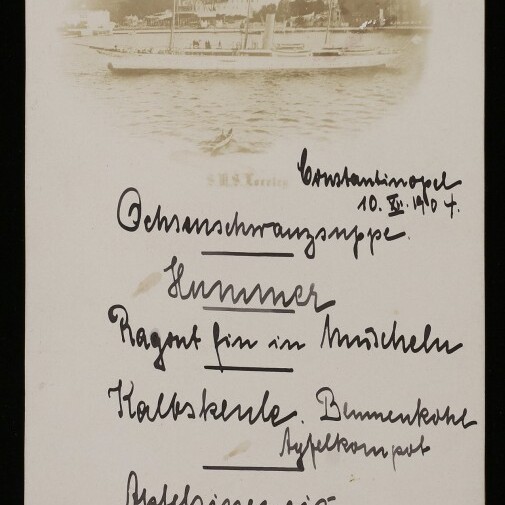 S.M.S. Loreley
Constantinopel
10. XII. 1904.
Ochsenschwanzsuppe.
Hummer
Ragout fin in Muscheln
Kalbskeule. Blumenkohl
Apfelkompot
Apfelsineneis